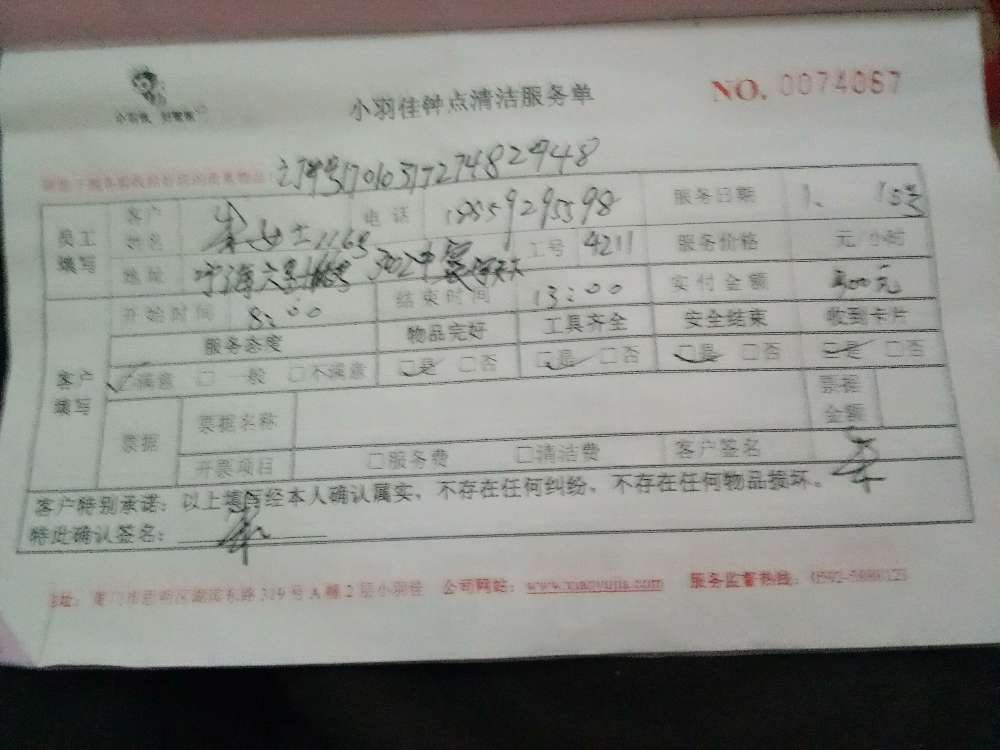 小羽佳 好管家
小羽佳钟点清洁服务单
NO. 0074067
订单号1701031727482948
员工填写 客户姓名 女士 电话 服务日期 1. 15号
地址 302 工号 4211 服务价格 元/小时
开始时间 8:00 结束时间 13:00 实付金额 元
客户填写 服务态度 物品完好 工具齐全 安全结束 收到卡片
□满意 □一般 □不满意 □是 □否 □是 □否 □是 □否 □是 □否
票据 票据名称 票据金额
开票项目 □服务费 □清洁费 客户签名
客户特别承诺：以上填写经本人确认属实，不存在任何纠纷，不存在任何物品损坏。
特此确认签名：
地址：厦门市思明区湖滨东路319号A幢2层小羽佳 公司网站：www.xiaoyujia.com 服务监督热线：